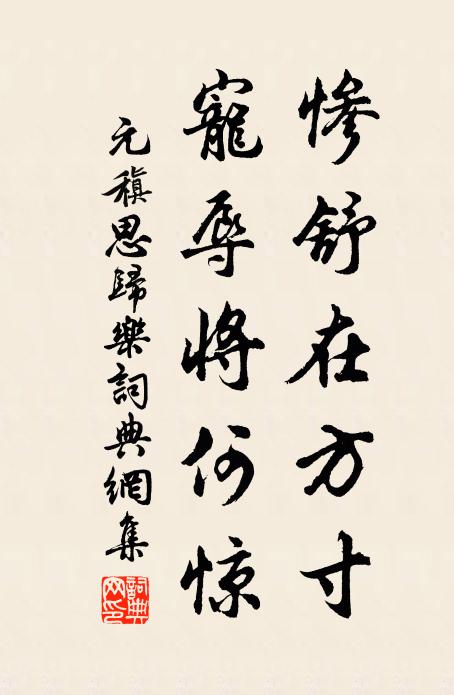 慘舒在方寸
寵辱將何惊
元稹思歸樂詞典網集
詞典
网印